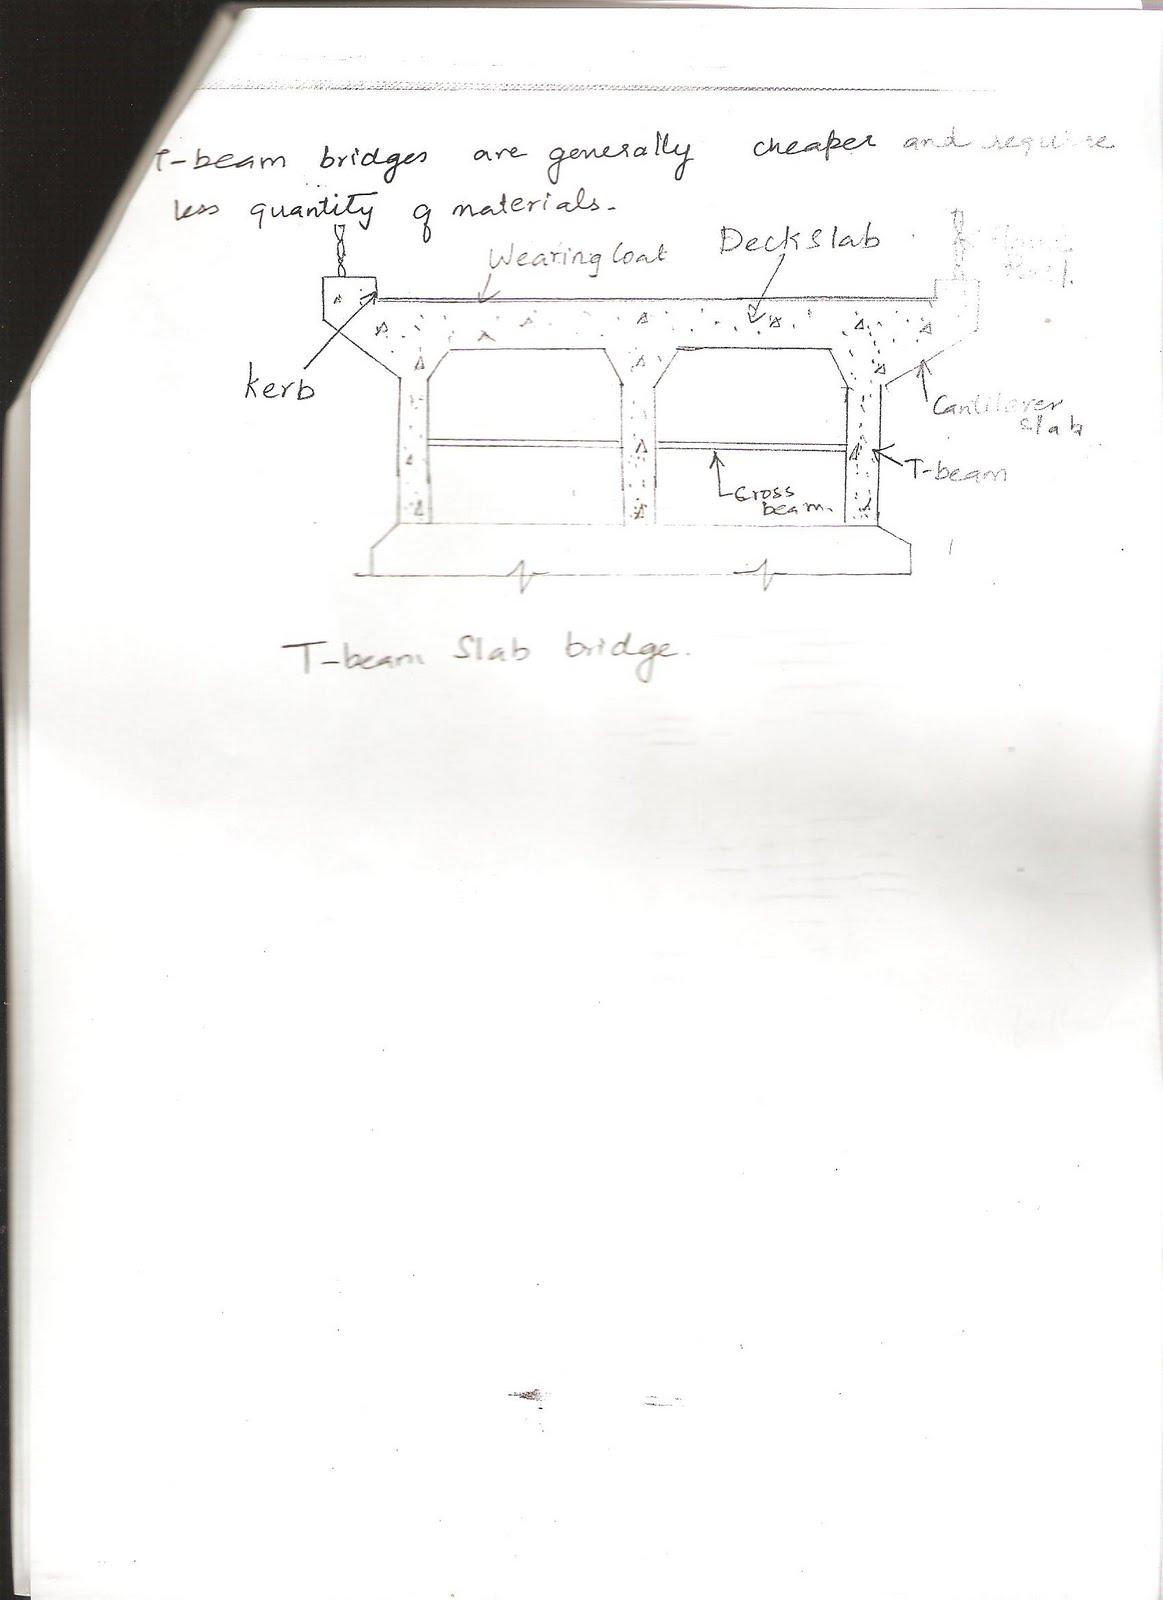 T-beam bridges are generally cheaper and require
less quantity of materials.
Wearing Coat
Deck slab
Hand
Rail.
kerb
Cantilever
slab
T-beam
Cross
beam.
T-beam Slab bridge.